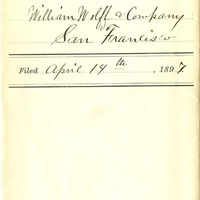 William Wolff & Company
San Francisco
Filed April 14th, 1897.